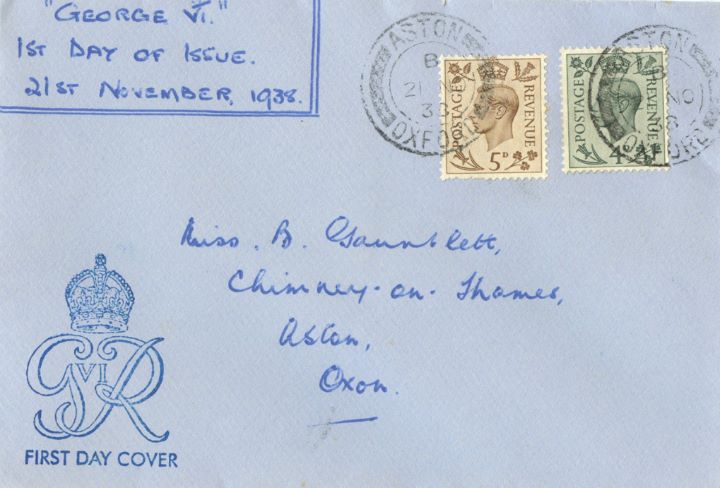 "GEORGE VI."
1ST DAY OF ISSUE.
21ST NOVEMBER, 1938.
ASTON
B
21 NO
38
OXFORD
POSTAGE
REVENUE
5D
ASTON
B
NO
38
OXFORD
POSTAGE
REVENUE
4D
Miss. B. Gauntlett,
Chimney-on-Thames,
Aston,
Oxon.
G VI R
FIRST DAY COVER